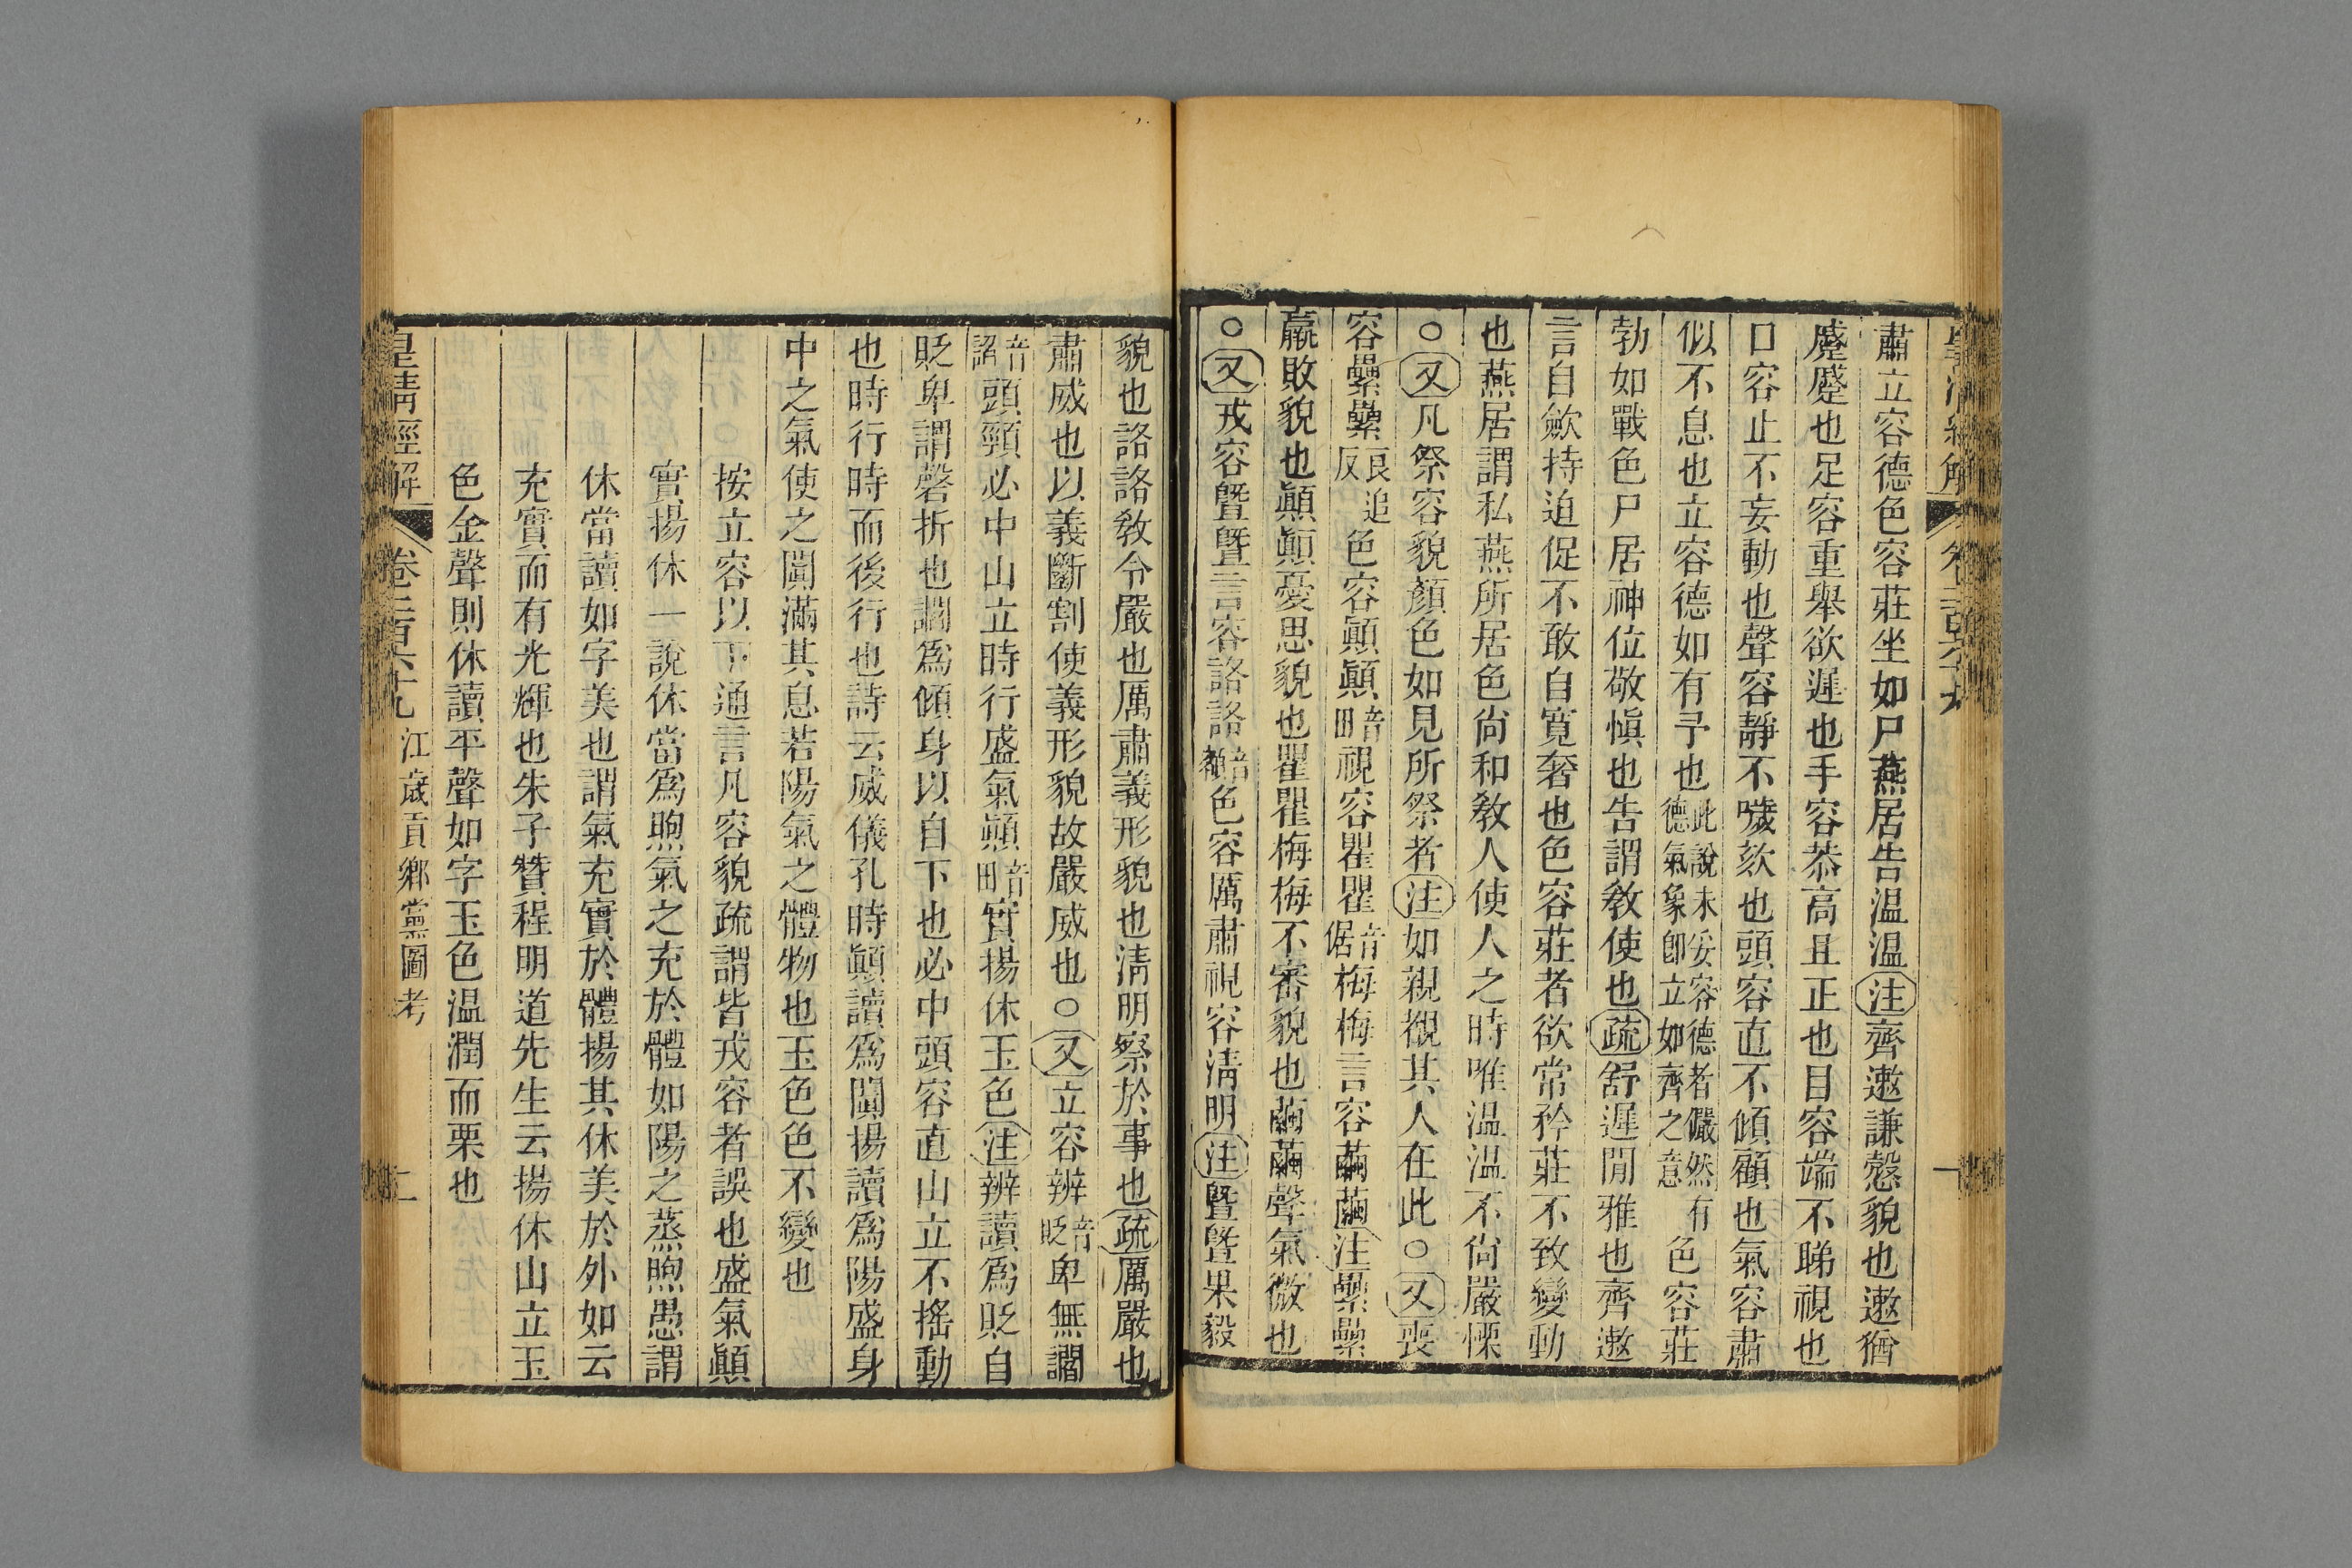 肅立容德色容莊坐如尸燕居告温温注齊遬謙慤貌也遬猶
蹙蹙也足容重舉欲遲也手容恭高且正也目容端不睇視也
口容止不妄動也聲容靜不噦欬也頭容直不傾顧也氣容肅
似不息也立容德如有予也此說未妥容德者儼然有德氣象卽立如齊之意色容莊
勃如戰色尸居神位敬愼也告謂敎使也疏舒遲閒雅也齊遬
言自歛持迫促不敢自寬奢也色容莊者欲常矜莊不致變動
也燕居謂私燕所居色尙和敎人使人之時唯温温不尙嚴慄
○又凡祭容貌顏色如見所祭者注如親覩其人在此○又喪
容纍纍良追反色容顚顚音田視容瞿瞿音倨梅梅言容繭繭注纍纍
羸敗貌也顚顚憂思貌也瞿瞿梅梅不審貌也繭繭聲氣微也
○又戎容曁曁言容詻詻音額色容厲肅視容淸明注曁曁果毅
貌也詻詻敎令嚴也厲肅義形貌也淸明察於事也疏厲嚴也
肅威也以義斷割使義形貌故嚴威也○又立容辨音貶卑無讇
音諂頭頸必中山立時行盛氣顚音田實揚休玉色注辨讀爲貶自
貶卑謂磬折也讇爲傾身以自下也必中頭容直山立不搖動
也時行時而後行也詩云威儀孔時顚讀爲闐揚讀爲陽盛身
中之氣使之闐滿其息若陽氣之體物也玉色色不變也
按立容以下通言凡容貌疏謂皆戎容者誤也盛氣顚
實揚休一說休當爲煦氣之充於體如陽之蒸煦愚謂
休當讀如字美也謂氣充實於體揚其休美於外如云
充實而有光輝也朱子贊程明道先生云揚休山立玉
色金聲則休讀平聲如字玉色温潤而栗也
皇淸經解 卷二百六十九 江歲貢鄉黨圖考 二